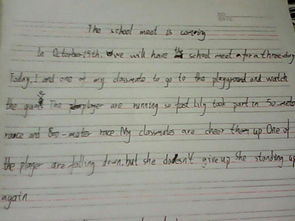 The school meet is coming
In October 19th. we will have the school meet for a three day
Today, I and one of my classmate to go to the playground and watch
the game The player are running so fast lily took part in 50-mete
race and 800-meter race My classmates are cheer them up One of
the player are falling down, but she doesn't give up she standing up
again